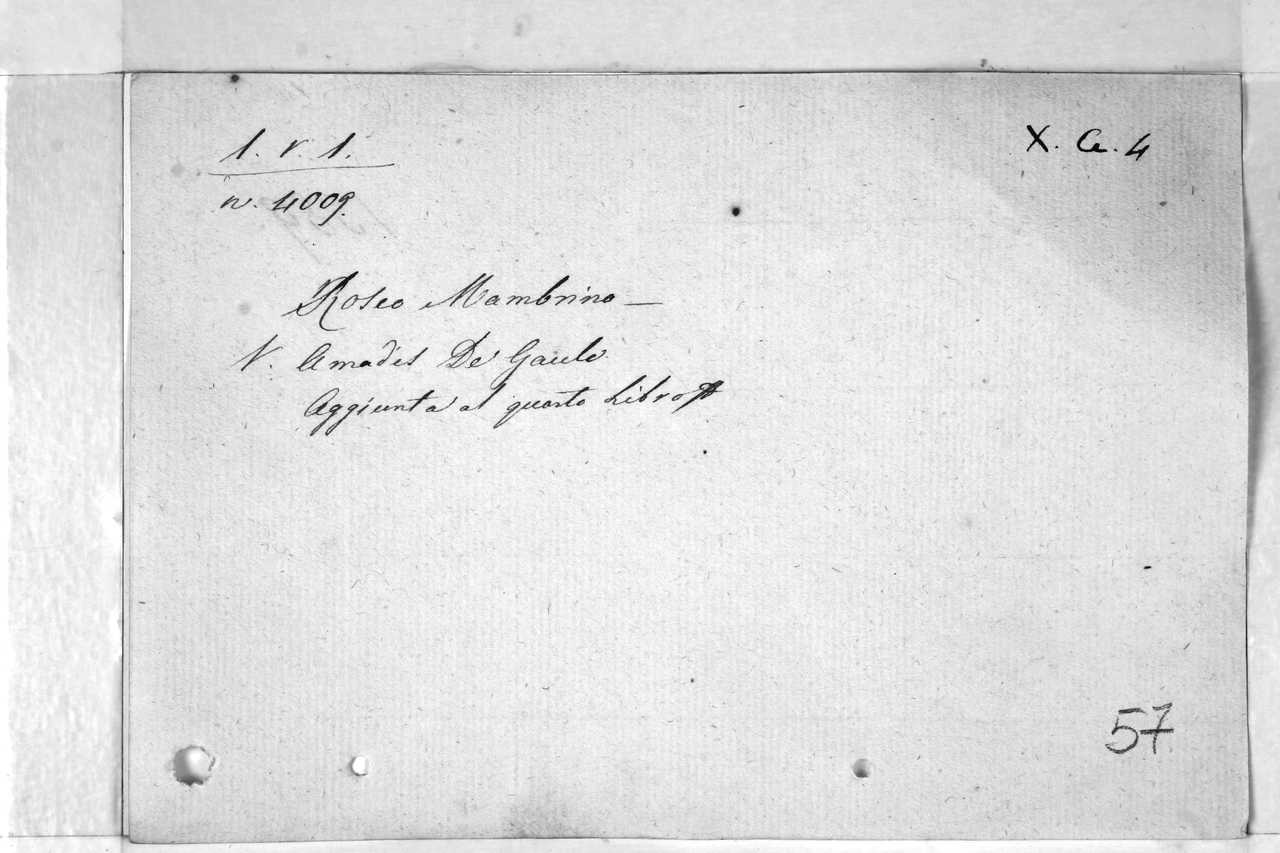 1. r. 1.
X. Ce. 4
n. 4009.
Roseo Mambrino —
V. Amadis De Gaule
Aggiunta al quarto Libro
57